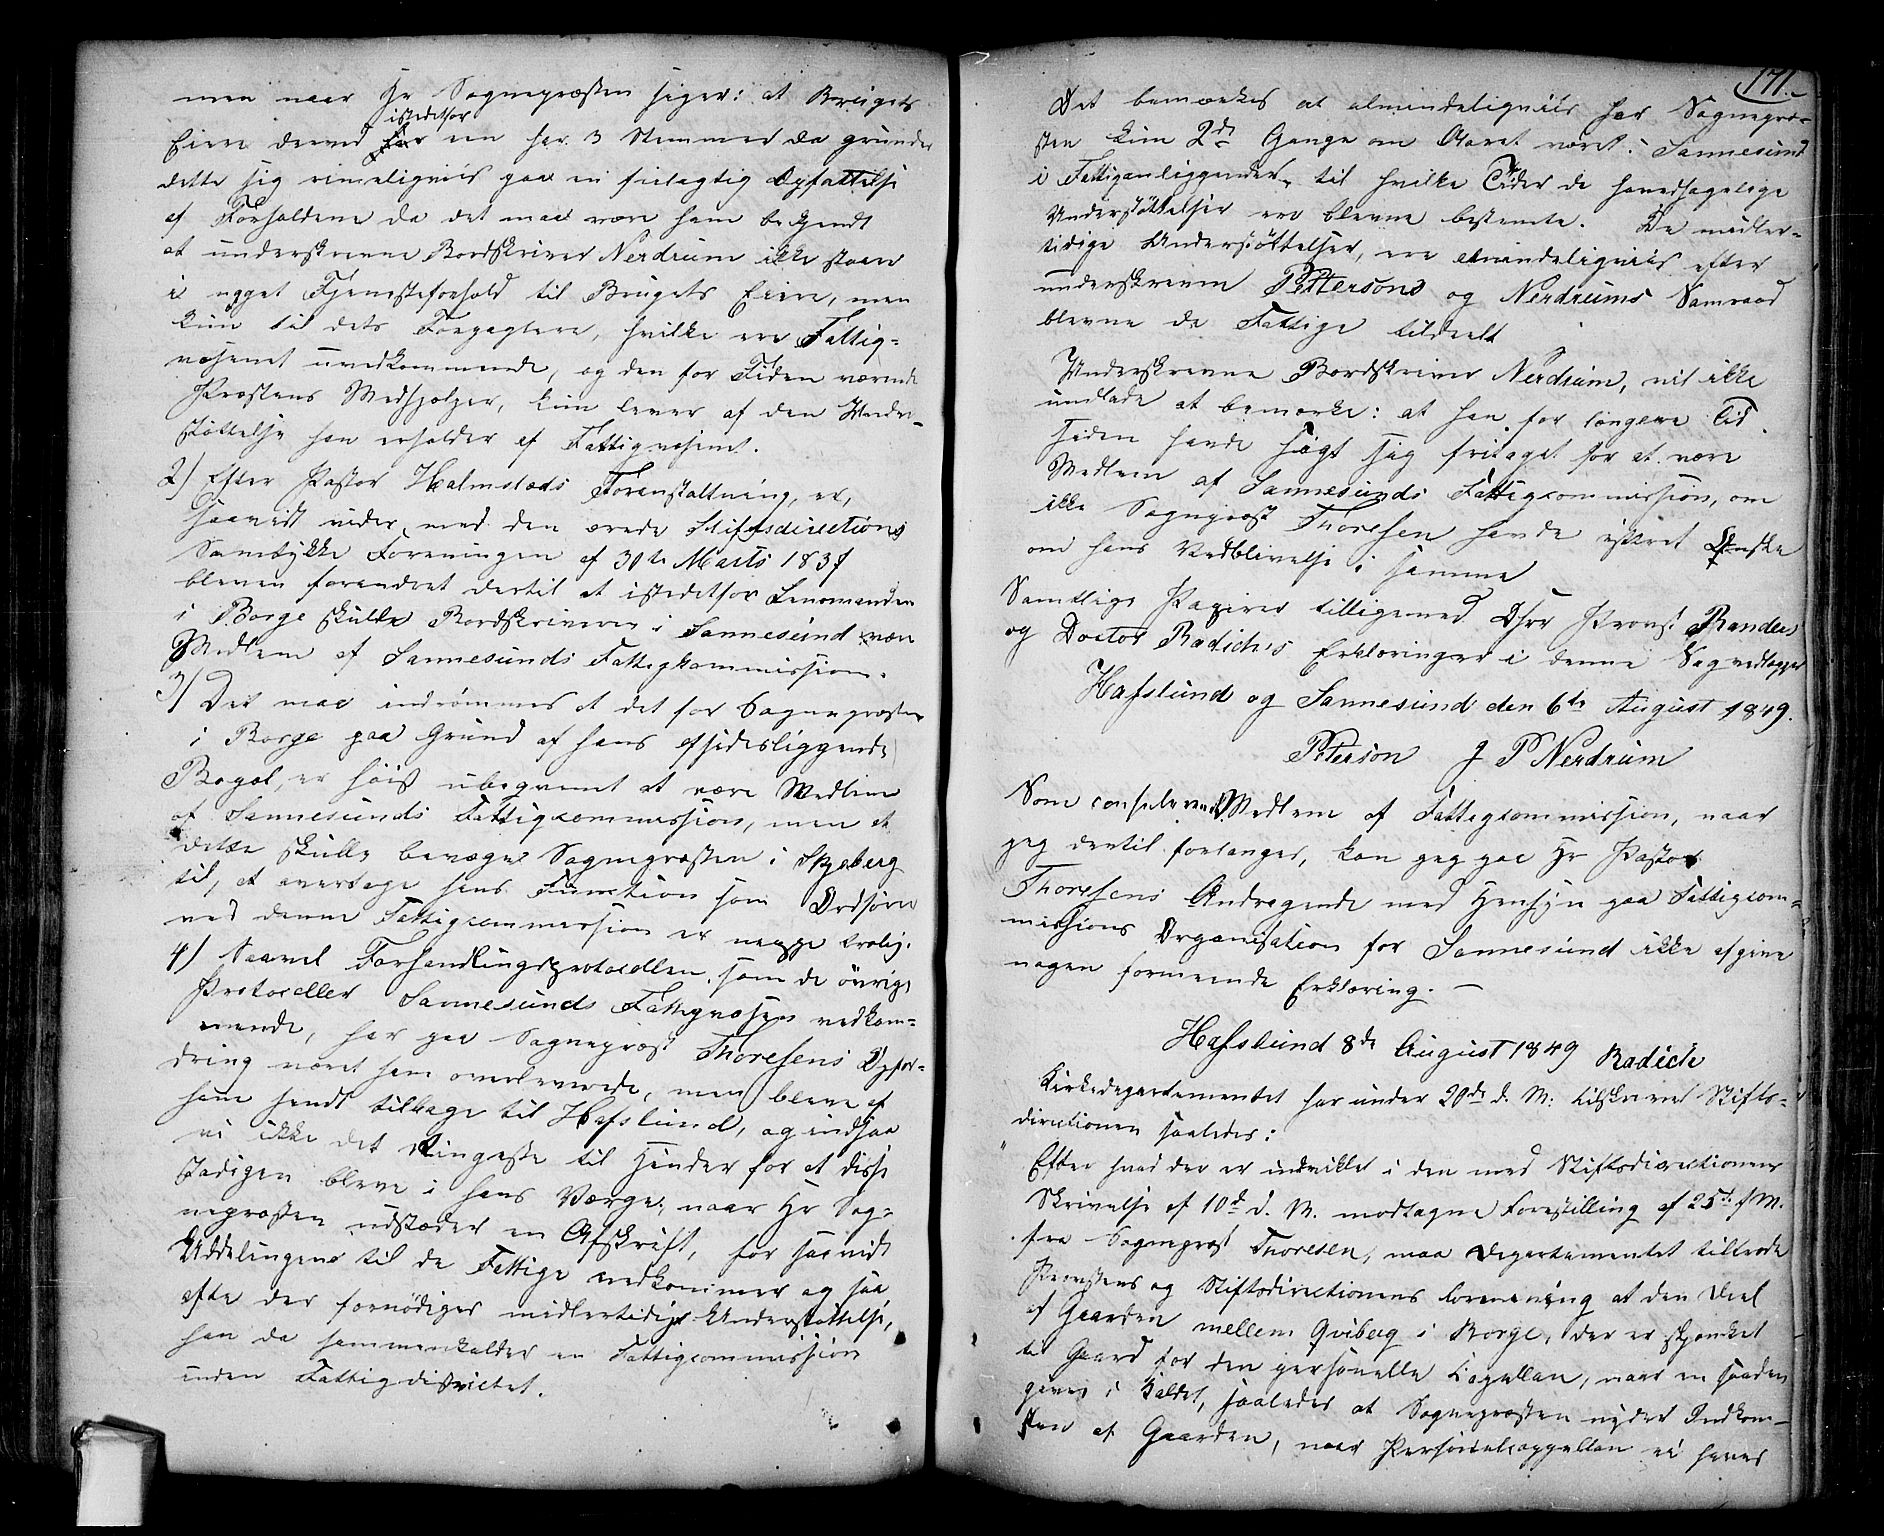 men naar Hr Sognepræsten siger: at Brugets
istedetfor
Eiere derved for een har 3 Stemmer da grunder
dette sig rimeligviis paa en feilagtig Opfattelse
af Forholdene da det maa være ham bekjendt
at underskrevne Bordskriver Nerdrum ikke staaer
i noget Tjenesteforhold til Brugets Eiere, men
kun til dets Forpagtere, hvilke ere Fattig-
væsenet uvedkommende, og den for Tiden værende
Præstens Medhjelper, kun lever af den Under-
støttelse han erholder af Fattigvæsenet.
2) Efter Pastor Halmstads Foranstaltning, er,
saavidt vides, med den ærede Stiftsdirections
Samtykke Foreningen af 30te Marts 1837
bleven forandret dertil at istedetfor Lensmanden
i Borge skulle Bordskriveren i Sannesund være
Medlem af Sannesunds Fattigkommission.
3) Det maa indrømmes at det for Sognepræsten
i Borge paa Grund af hans afsidesliggende
Bopæl, er høist ubeqvemt at være Medlem
af Sannesunds Fattigcommission, men at
dette skulle bevæge Sognepræsten i Skjeberg
til, at overtage hans Function som Ordfører
ved denne Fattigcommission er neppe trolig.
4) Saavel Forhandlingsprotocollen som de øvrige
Protocoller Sannesunds Fattigvæsen vedkom-
mende, har paa Sognepræst Thoresens Opfor-
dring været ham overleverede, men bleve af
ham sendt tilbage til Hafslund, og indsaa
vi ikke det Ringeste til Hinder for at disse
stadigen bleve i hans Værge, naar Hr Sog-
nepræsten udsteder en Afskrift, for saavidt
Uddelingen til de Fattige vedkommer og saa
ofte der fornødiges midlertidige Understøttelse,
han da sammenkalder en Fattigcommission
inden Fattigdistrictet.
171.
Det bemærkes at almindeligviis har Sognepræ-
sten kun 2de Gange om Aaret været i Sannesund
i Fattiganliggender, til hvilke Tider de hovedsagelige
Understøttelser ere blevne bestemte. De midler-
tidige Understøttelser, ere almindeligviis efter
underskrevne Pettersons og Nerdrums Samraad
blevne de Fattige tildeelt
Underskrevne Bordskriver Nerdrum, vil ikke
undlade at bemærke: at han for længere Tid
siden havde søgt sig fritaget for at være
Medlem af Sannesunds Fattigcommission, om
ikke Sognepræst Thoresen havde yttret Ønske
om hans Vedblivelse i samme
Samtlige Papirer tilligemed Dhrr Provst Randers
og Doctor Radichs Erklæringer i denne Sag vedlægges
Hafslund og Sannesund den 6te August 1849.
Peterson J P Nerdrum
Som consulerende Medlem af Fattigcommission, naar
jeg dertil forlanges, kan jeg paa Hr Pastor
Thoresens Andragende med Hensyn paa Fattigcom-
missions Organisation for Sannesund ikke afgive
nogen formeende Erklæring. —
Hafslund 8de August 1849 Radich
Kirkedepartementet har under 20de d. M. tilskrevet Stifts-
directionen saaledes:
" Efter hvad der er indviklet i den med Stiftsdirectionens
Skrivelse af 10de d. M. modtagne Forestilling af 25de f. M.
fra Sognepræst Thoresen, maa Departementet tiltræde
Provstens og Stiftsdirectionens Formening at den Deel
af Gaarden mellem Qviberg i Borge, der er skjænket
til Gaard for den personelle Capellan, naar en saadan
gives i Kaldet, saaledes at Sognepræsten nyder Indkom-
sten af Gaarden, naar Personelcappellan ei haves